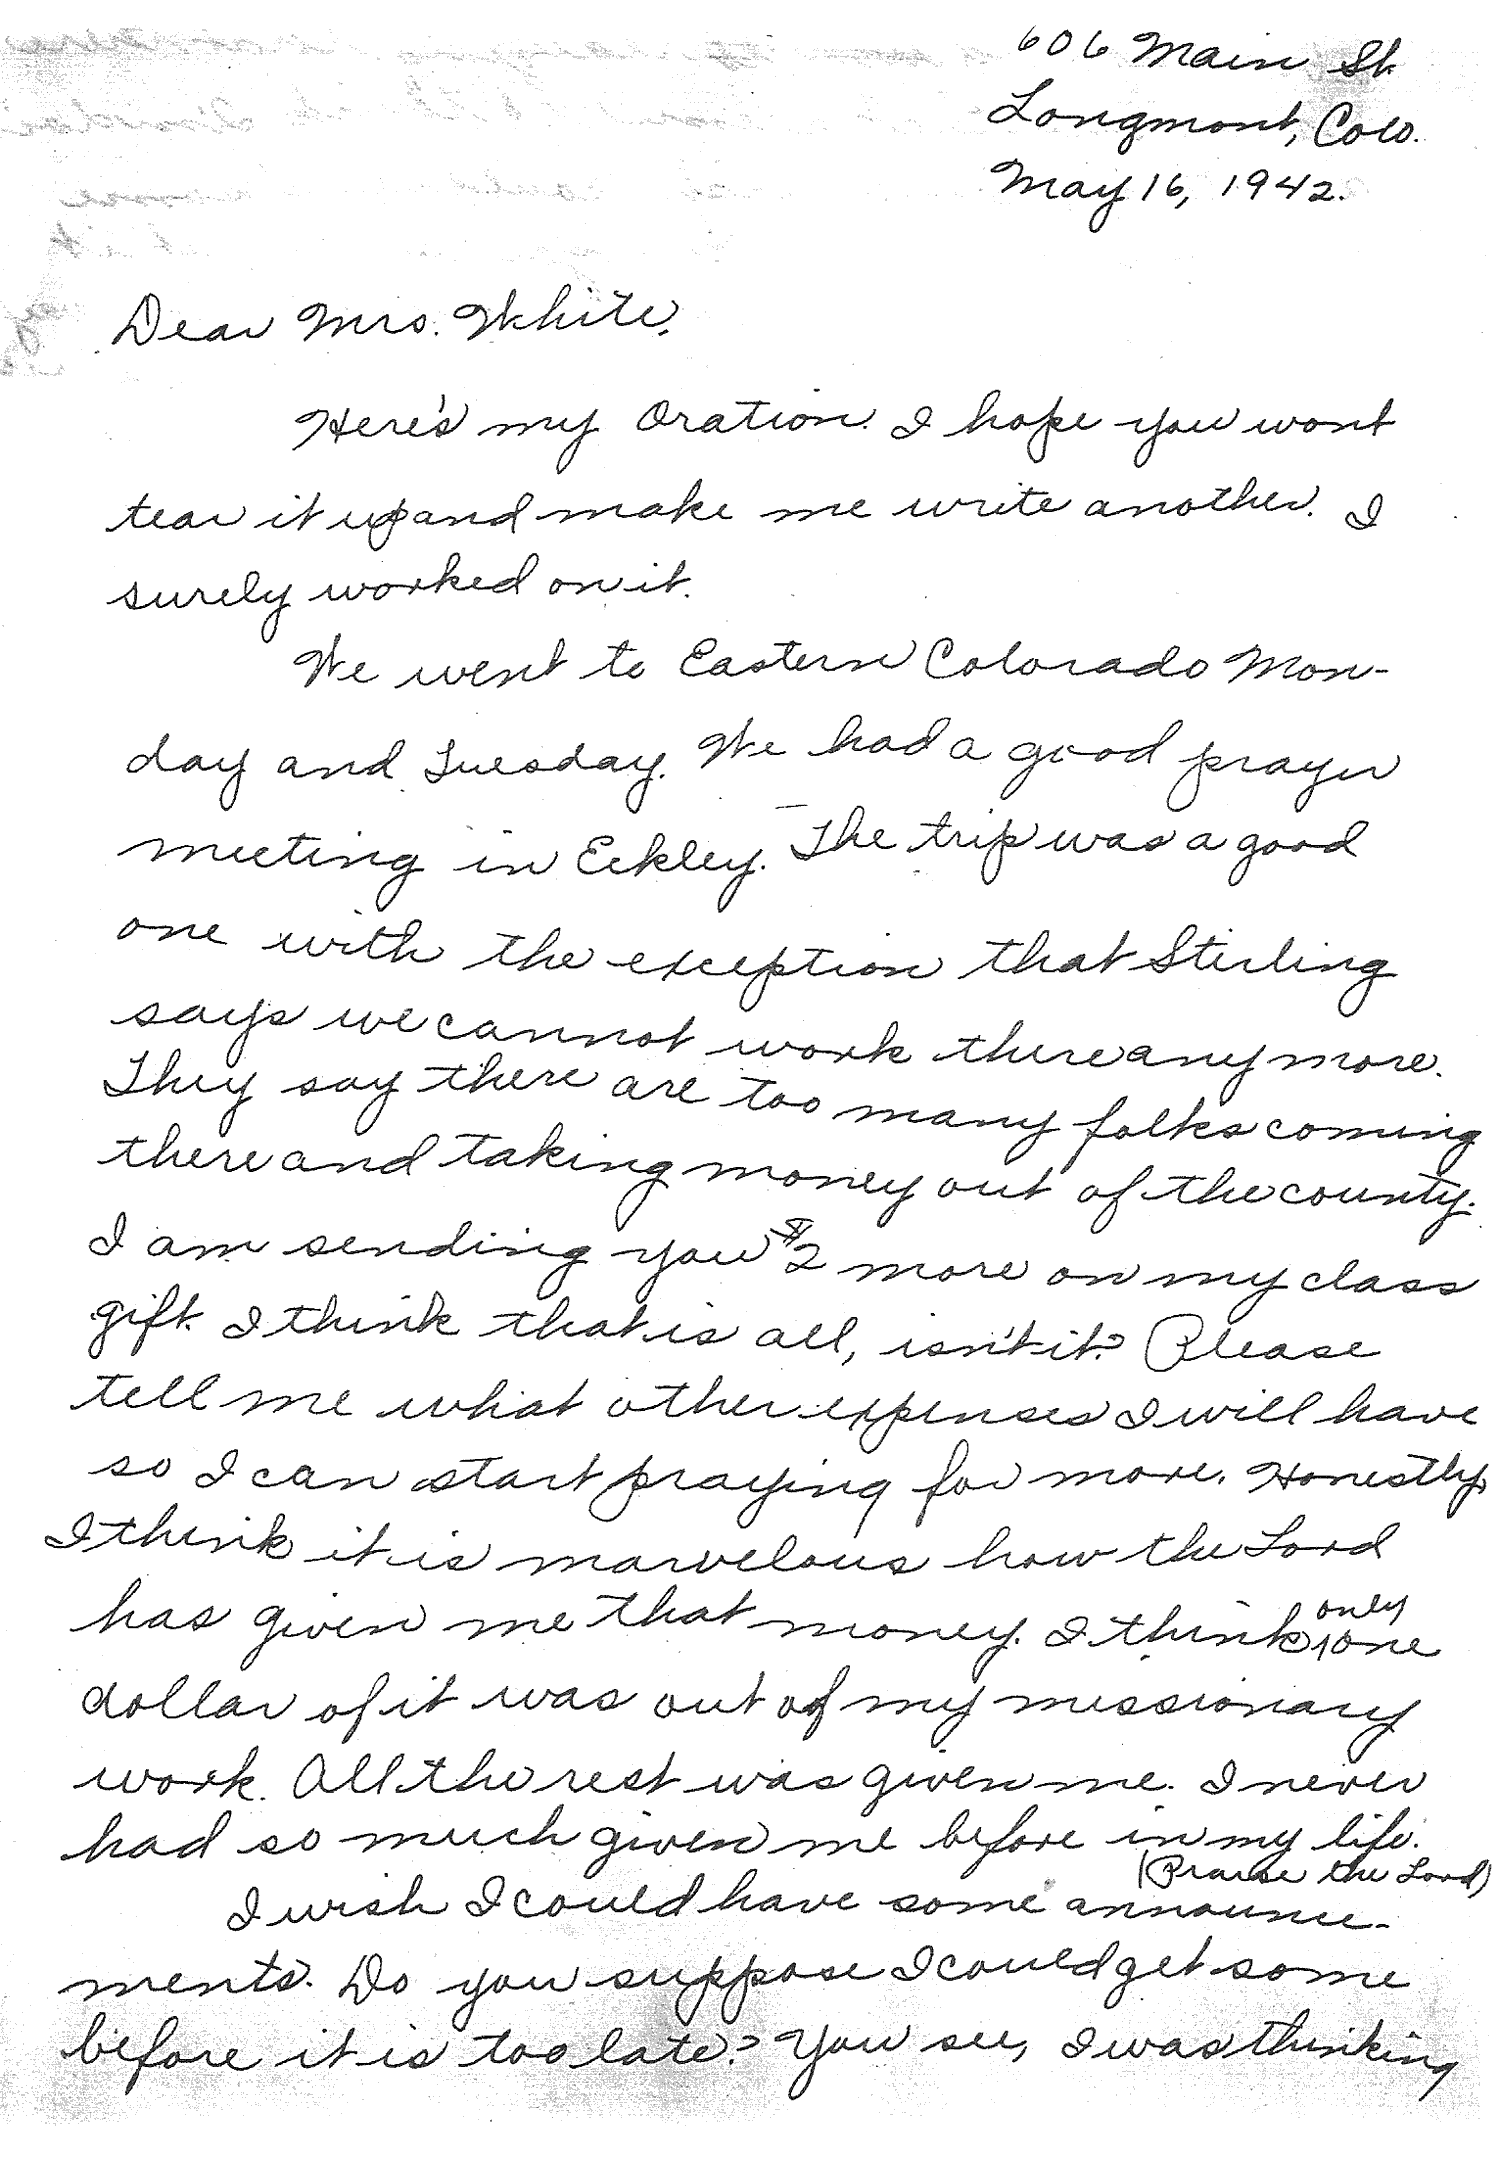 606 Main St.
Longmont, Colo.
May 16, 1942.
Dear Mrs. White,
Here's my Oration. I hope you wont
tear it up and make me write another. I
surely worked on it.
We went to Eastern Colorado Mon-
day and Tuesday. We had a good prayer
meeting in Eckley. The trip was a good
one with the exception that Sterling
says we cannot work there any more.
They say there are too many folks coming
there and taking money out of the county.
I am sending you $2 more on my class
gift. I think that is all, isn't it? Please
tell me what other expenses I will have
so I can start praying for more. Honestly,
I think it is marvelous how the Lord
has given me that money. I think only one
dollar of it was out of my missionary
work. All the rest was given me. I never
had so much given me before in my life.
(Praise the Lord)
I wish I could have some announce-
ments. Do you suppose I could get some
before it is too late? You see, I was thinking